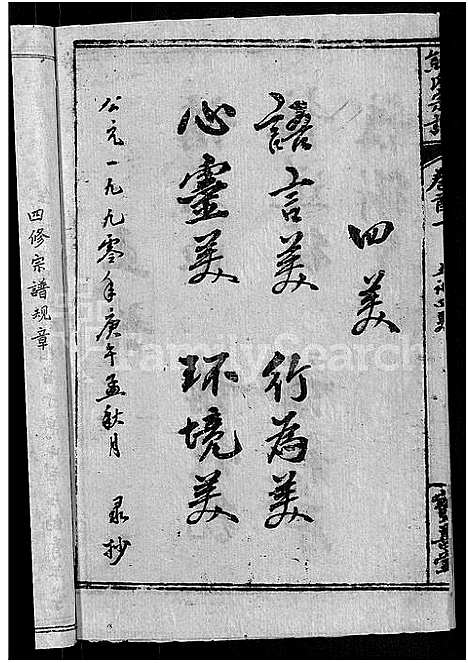 四美
語言美 行為美
心靈美 环境美
公元一九九零年庚午孟秋月 录抄
四修宗譜规章
FamilySearch